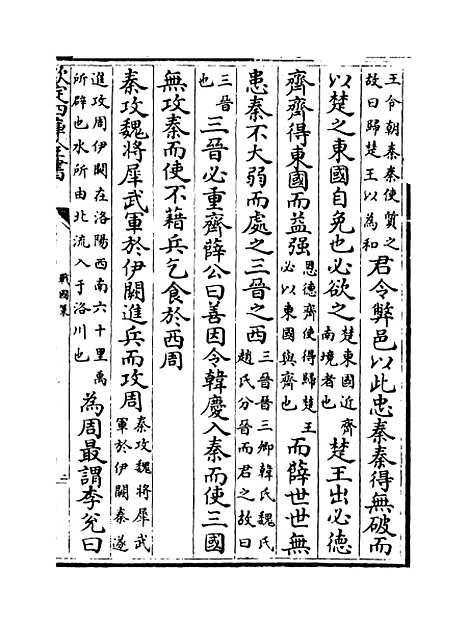 王令朝秦秦使質之
故曰歸楚王以為和
君令弊邑以此忠秦秦得無破而
以楚之東國自免也必欲之
楚東國近齊
南境者也
楚王出必德
齊齊得東國而益强
恩德齊使得歸楚王
必以東國與齊也
而薛世世無
患秦不大弱而處之三晉之西
三晉晉三卿韓氏魏氏
趙氏分晉而君之故曰
三晉
也
三晉必重齊薛公曰善因令韓慶入秦而使三國
無攻秦而使不藉兵乞食於西周
秦攻魏將犀武軍於伊闕進兵而攻周
秦攻魏將犀武
軍於伊闕秦遂
進攻周伊闕在洛陽西南六十里禹
所辟也水所由北流入于洛川也
為周最謂李兊曰
欽定四庫全書
戰國策
二